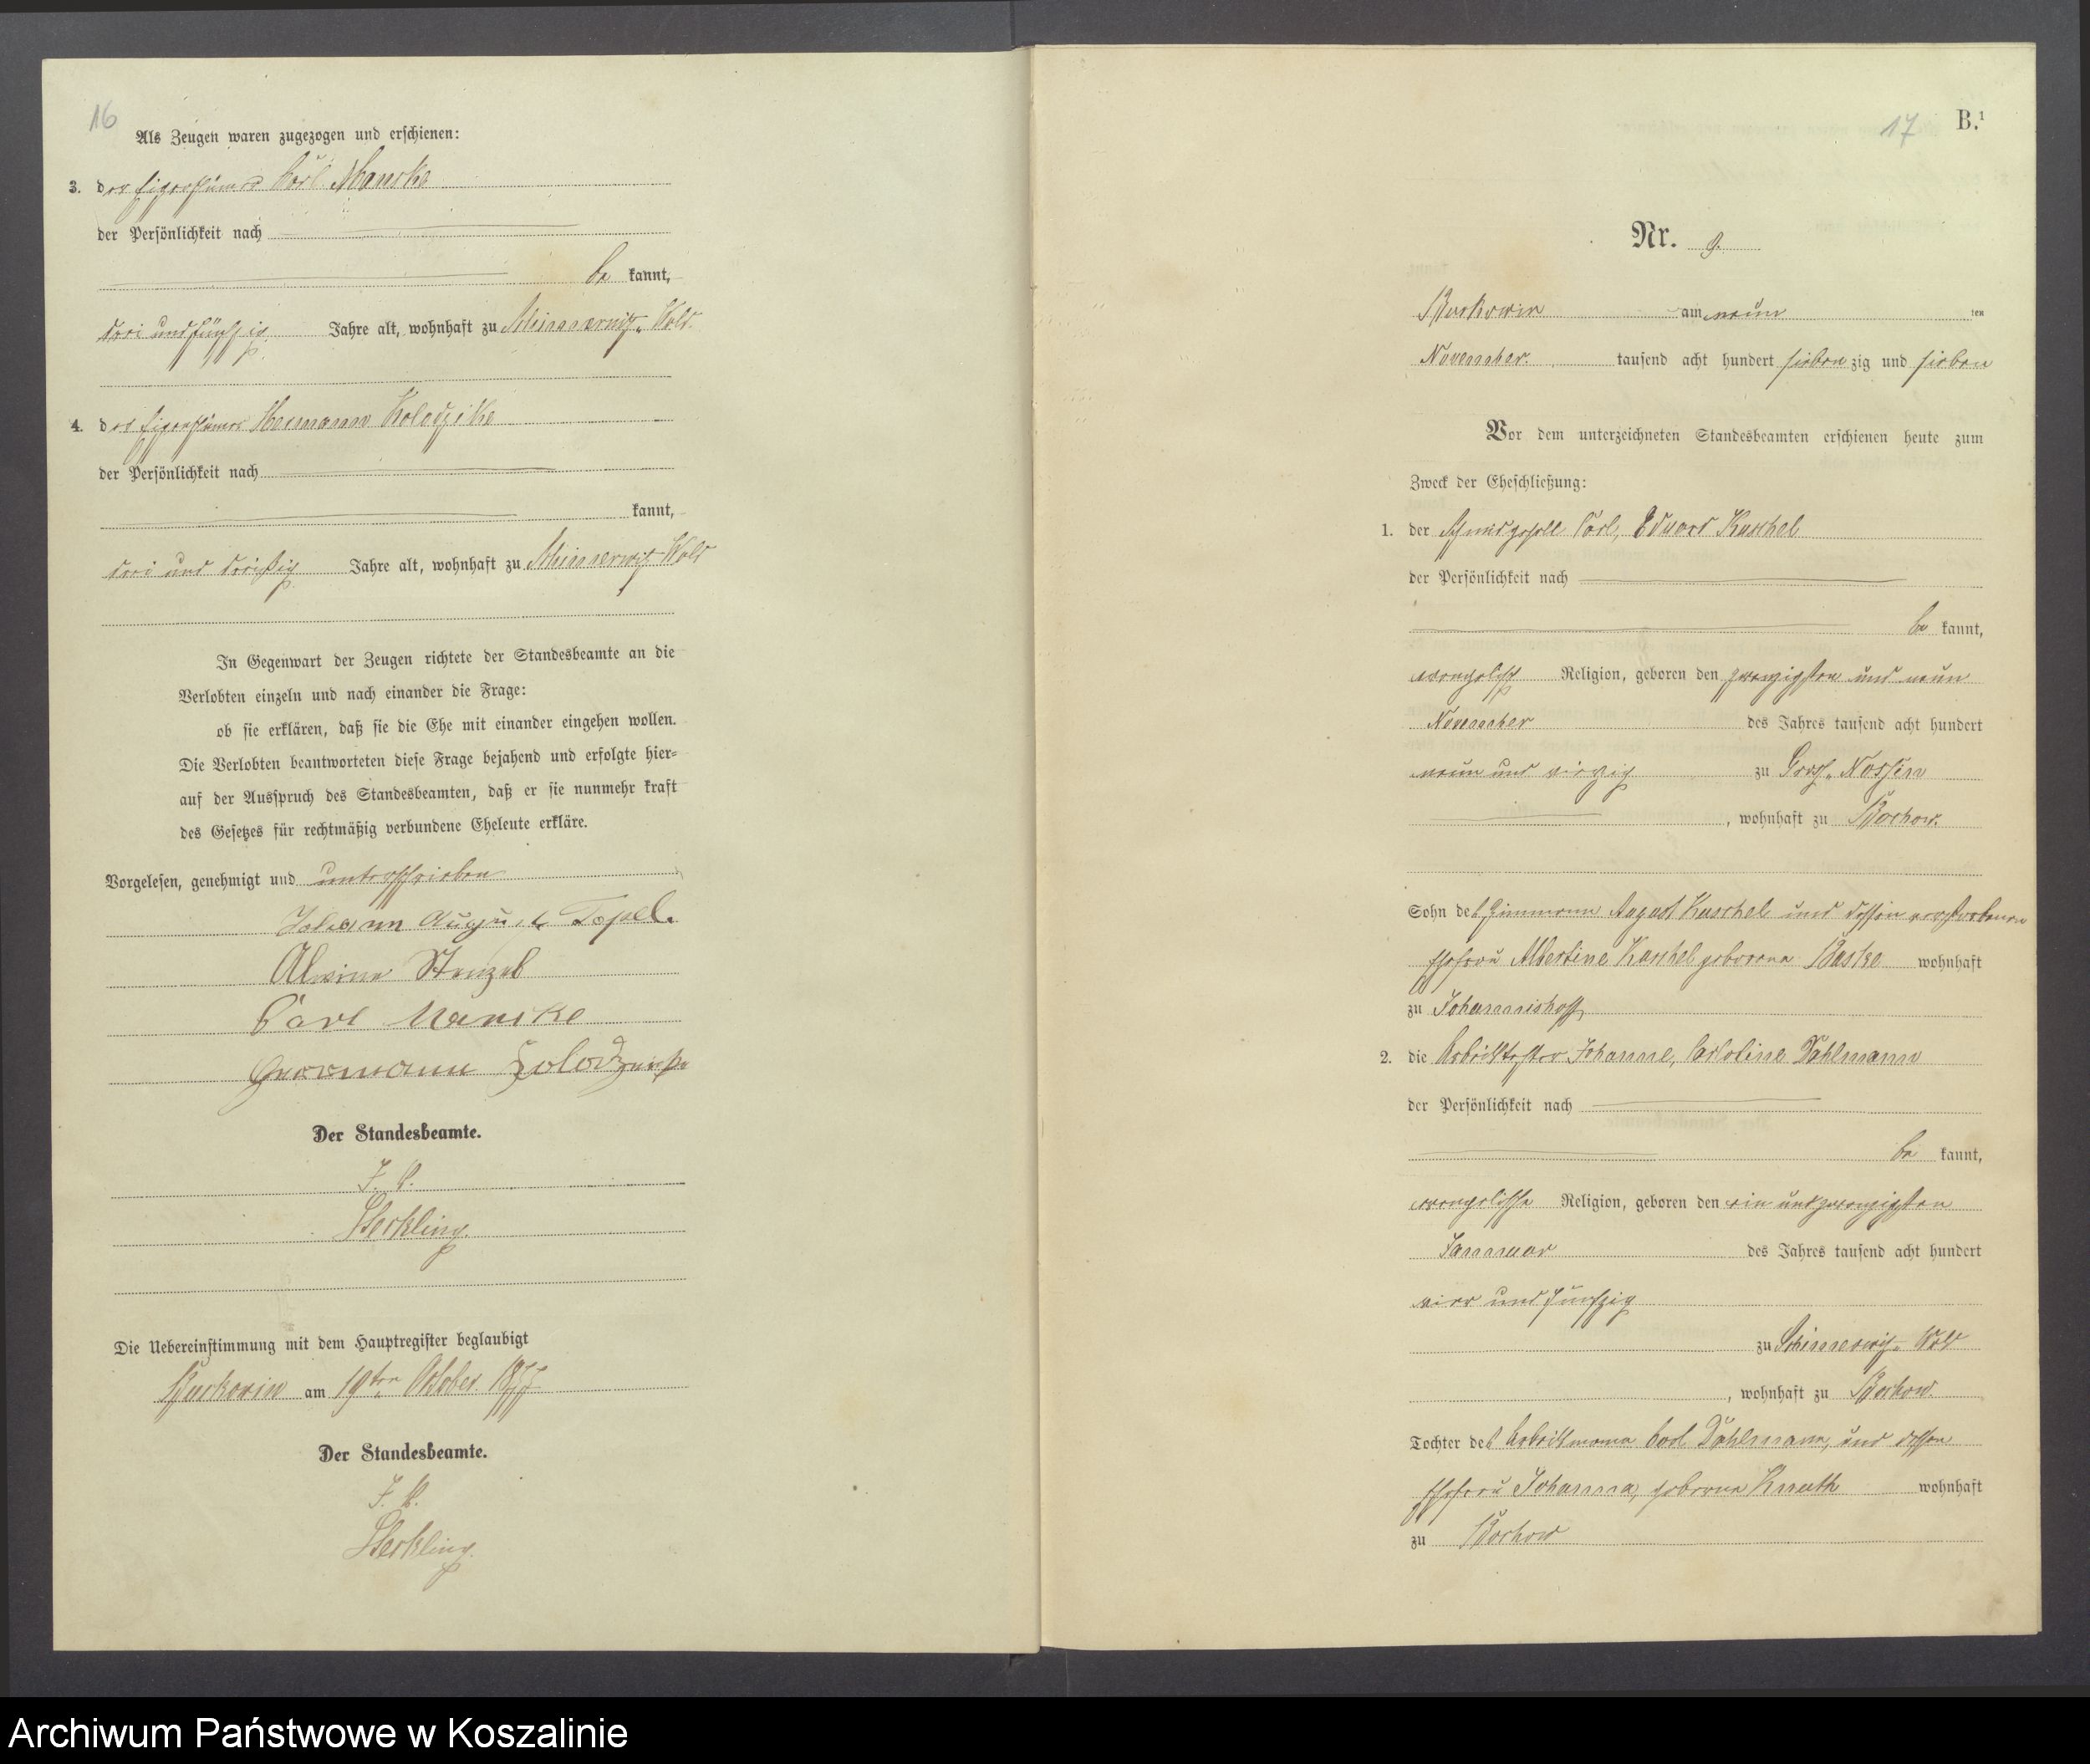 16
Als Zeugen waren zugezogen und erschienen:
3. der Eigenthümer Carl Manske
der Persönlichkeit nach
be kannt,
drei und fünfzig Jahre alt, wohnhaft zu Schimmerwitz-Wold.
4. der Eigenthümer Hermann Kolodzike
der Persönlichkeit nach
kannt,
drei und dreißig Jahre alt, wohnhaft zu Schimerwitz Wold
In Gegenwart der Zeugen richtete der Standesbeamte an die
Verlobten einzeln und nach einander die Frage:
ob sie erklären, daß sie die Ehe mit einander eingehen wollen.
Die Verlobten beantworteten diese Frage bejahend und erfolgte hier=
auf der Ausspruch des Standesbeamten, daß er sie nunmehr kraft
des Gesetzes für rechtmäßig verbundene Eheleute erkläre.
Vorgelesen, genehmigt und unterschrieben
Johann August Topel.
Alwine Stenzel
Carl Manske
Herrmann
Der Standesbeamte.
Sterkling.
Die Uebereinstimmung mit dem Hauptregister beglaubigt
Buckowin am 19ten October 1877
Der Standesbeamte.
Sterkling.
17 B.¹
Nr. 9.
Buckowin am neun ten
November. tausend acht hundert sieben zig und sieben
Vor dem unterzeichneten Standesbeamten erschienen heute zum
Zweck der Eheschließung:
1. der Schmidgesell Carl, Eduard Kuschel
der Persönlichkeit nach
be kannt,
evangelisch Religion, geboren den zwanzigsten und neun
November des Jahres tausend acht hundert
neun und vierzig zu Gross-Nossin
, wohnhaft zu Bochow.
Sohn des Zimmerm August Kuschel und dessen verstorbenen
Ehefrau Albertine Kuschel geborene Baske wohnhaft
zu Johannishoff,
2. die Arbeitstochter Johanne, Carloline Dahlmann
der Persönlichkeit nach
be kannt,
evangelische Religion, geboren den ein und zwanzigsten
Januar des Jahres tausend acht hundert
vier und fünfzig
zu Schimerwitz-Wold
, wohnhaft zu Bochow
Tochter des Arbeitsmann Carl Dahlmann, und dessen
Ehefrau Johanna, geborene Knuth wohnhaft
zu Bochow
Archiwum Państwowe w Koszalinie